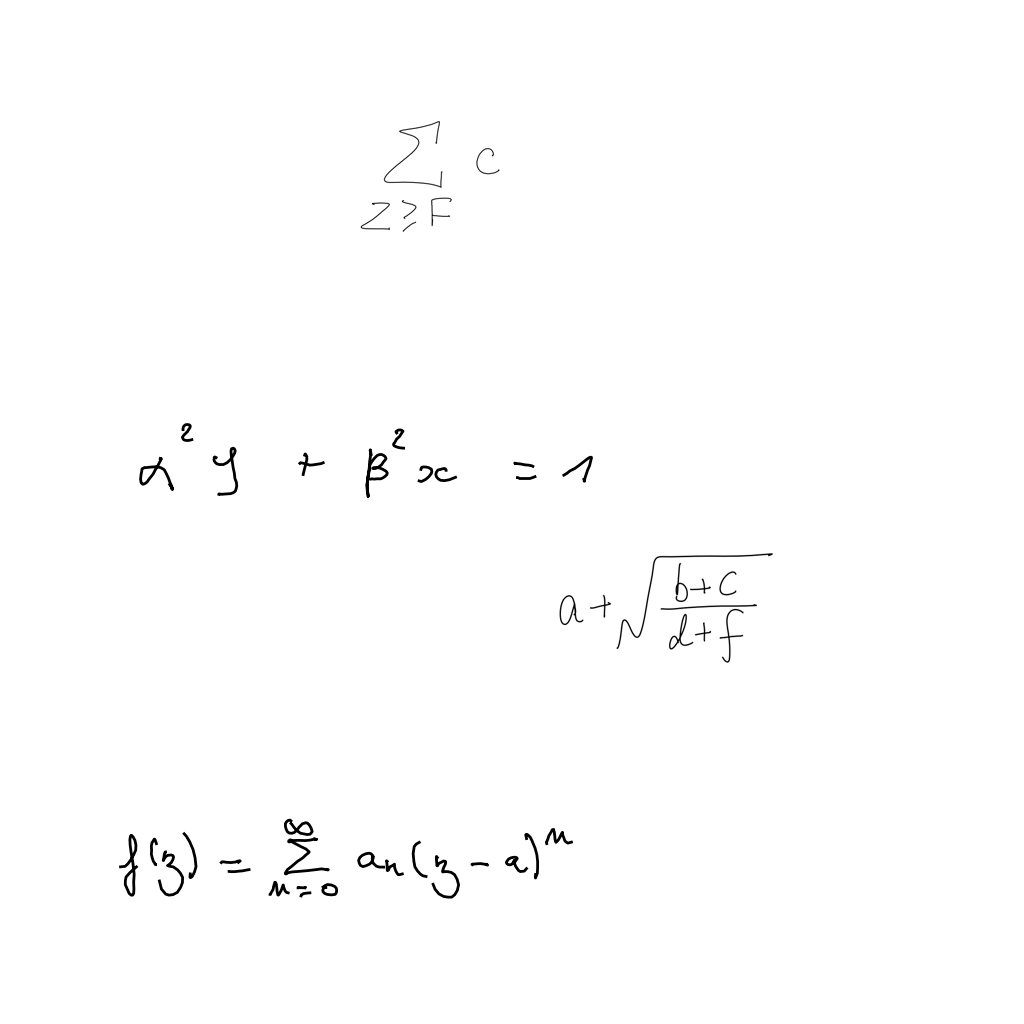 \sum_{z \geq F} c
\alpha^2 y + \beta^2 x = 1
a + \sqrt{\frac{b+c}{d+f}}
f(z) = \sum_{n=0}^{\infty} a_n (z - a)^n